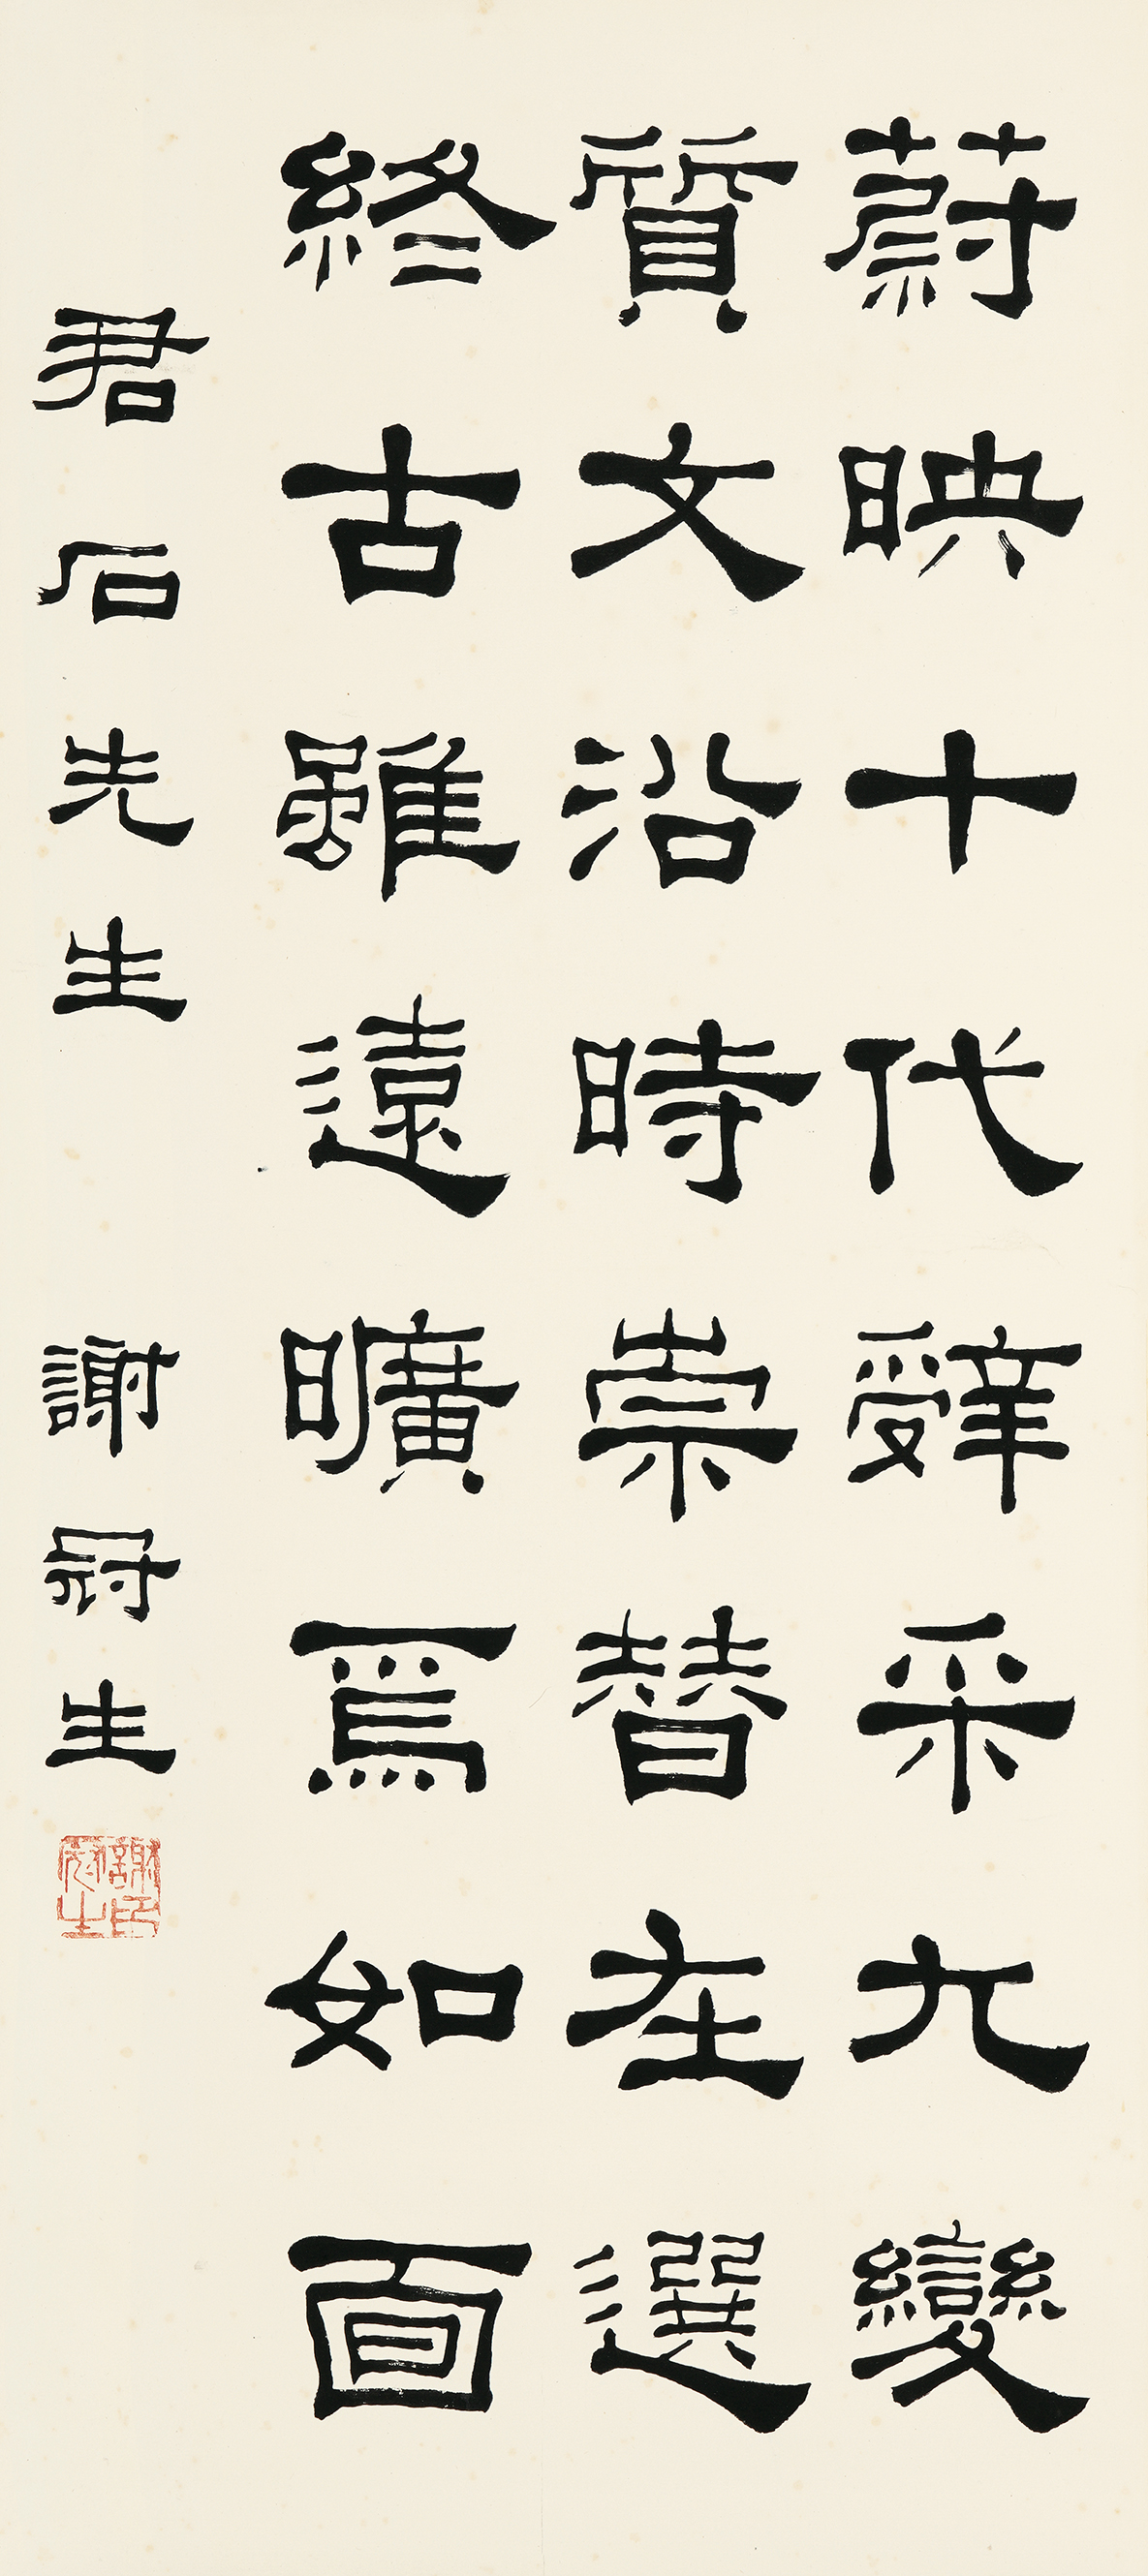 蔚映十代辤采九變
質文沿時崇替在選
終古雖遠曠焉如面
君石先生 謝冠生
謝印冠生